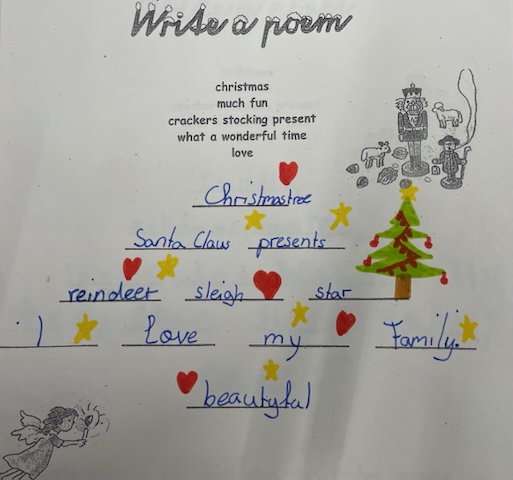 Write a poem
christmas
much fun
crackers stocking present
what a wonderful time
love
Christmastree
Santa Claus presents
reindeer sleigh star
I love my Family.
beautyful